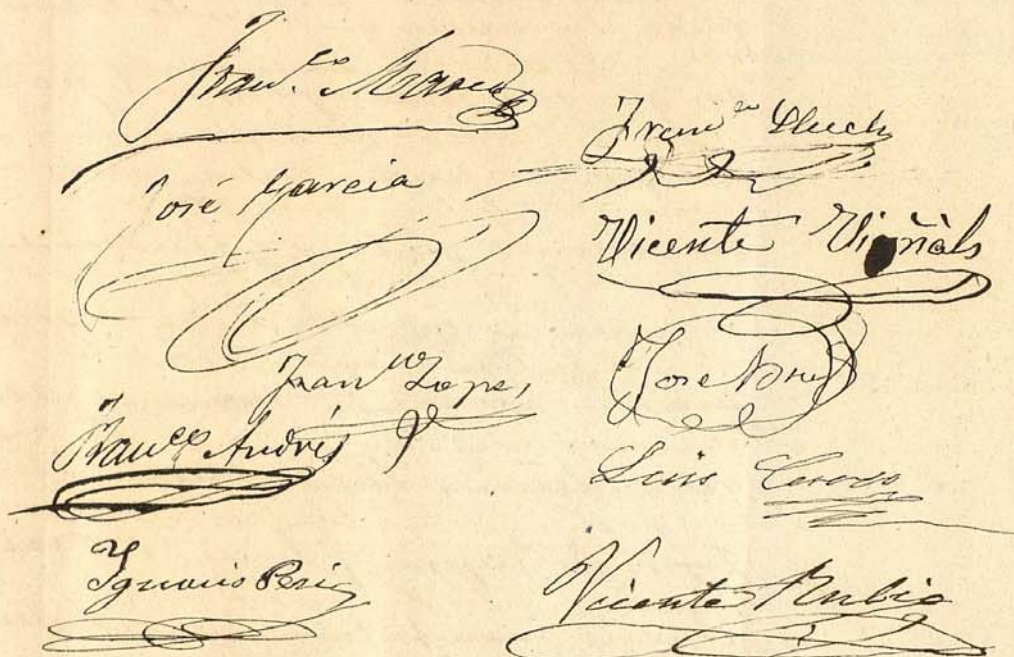 Franco
José Garcia
Franco Lopez
Franco Andrés
Ygnacio Peris
Franco Lluch
Vicente Viñals
Jose
Luis
Vicente Rubio